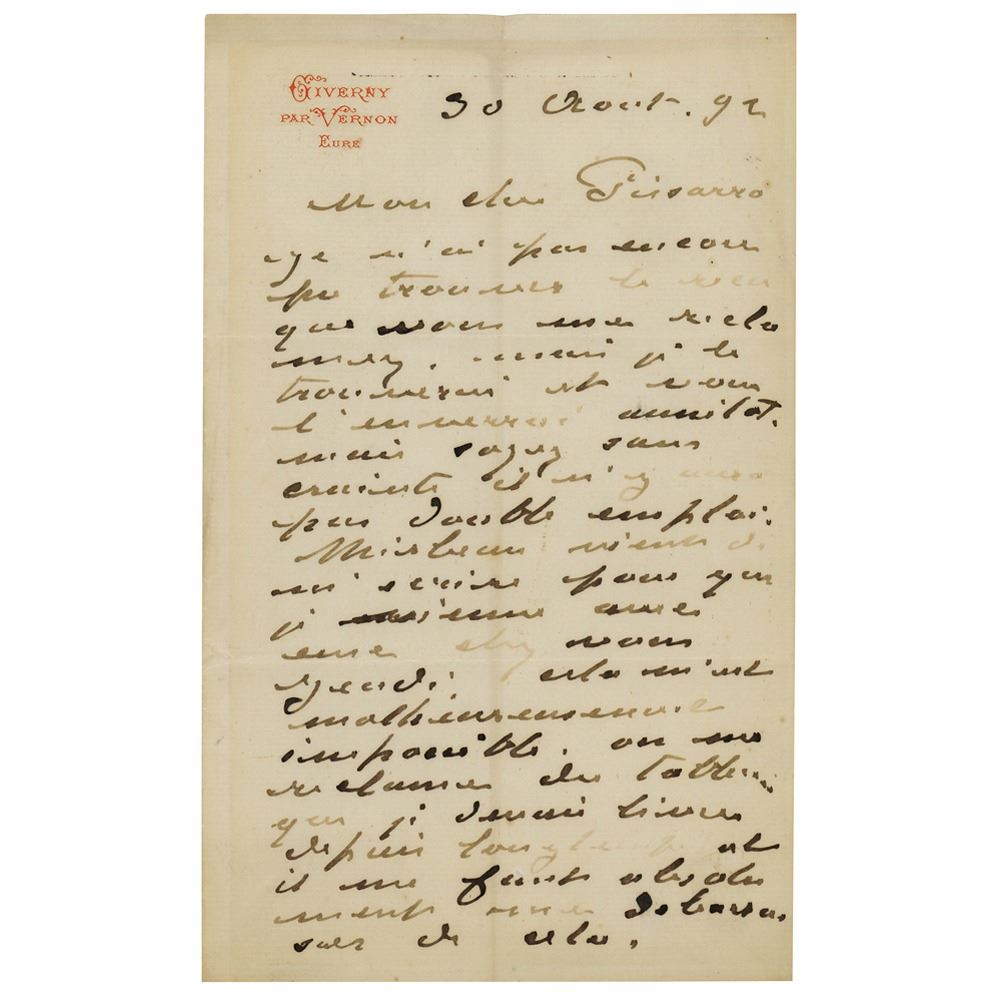 GIVERNY
PAR VERNON
EURE
30 Aout. 92
Mon cher Pissarro
je n'ai pas encore
pu trouver le recu
que vous me recla
mez. mais je le
trouverai et vous
l'enverrai aussitot.
mais soyez sans
crainte il n'y aura
pas double emploi.
Mirbeau vient de
m'ecrire pour que
je vienne avec
eux chez vous
jeudi. cela m'est
malheureusement
impossible. on me
reclame des tableaux
que je devais livrer
depuis longtemps et
il me faut absolu
ment me debarras
ser de cela.